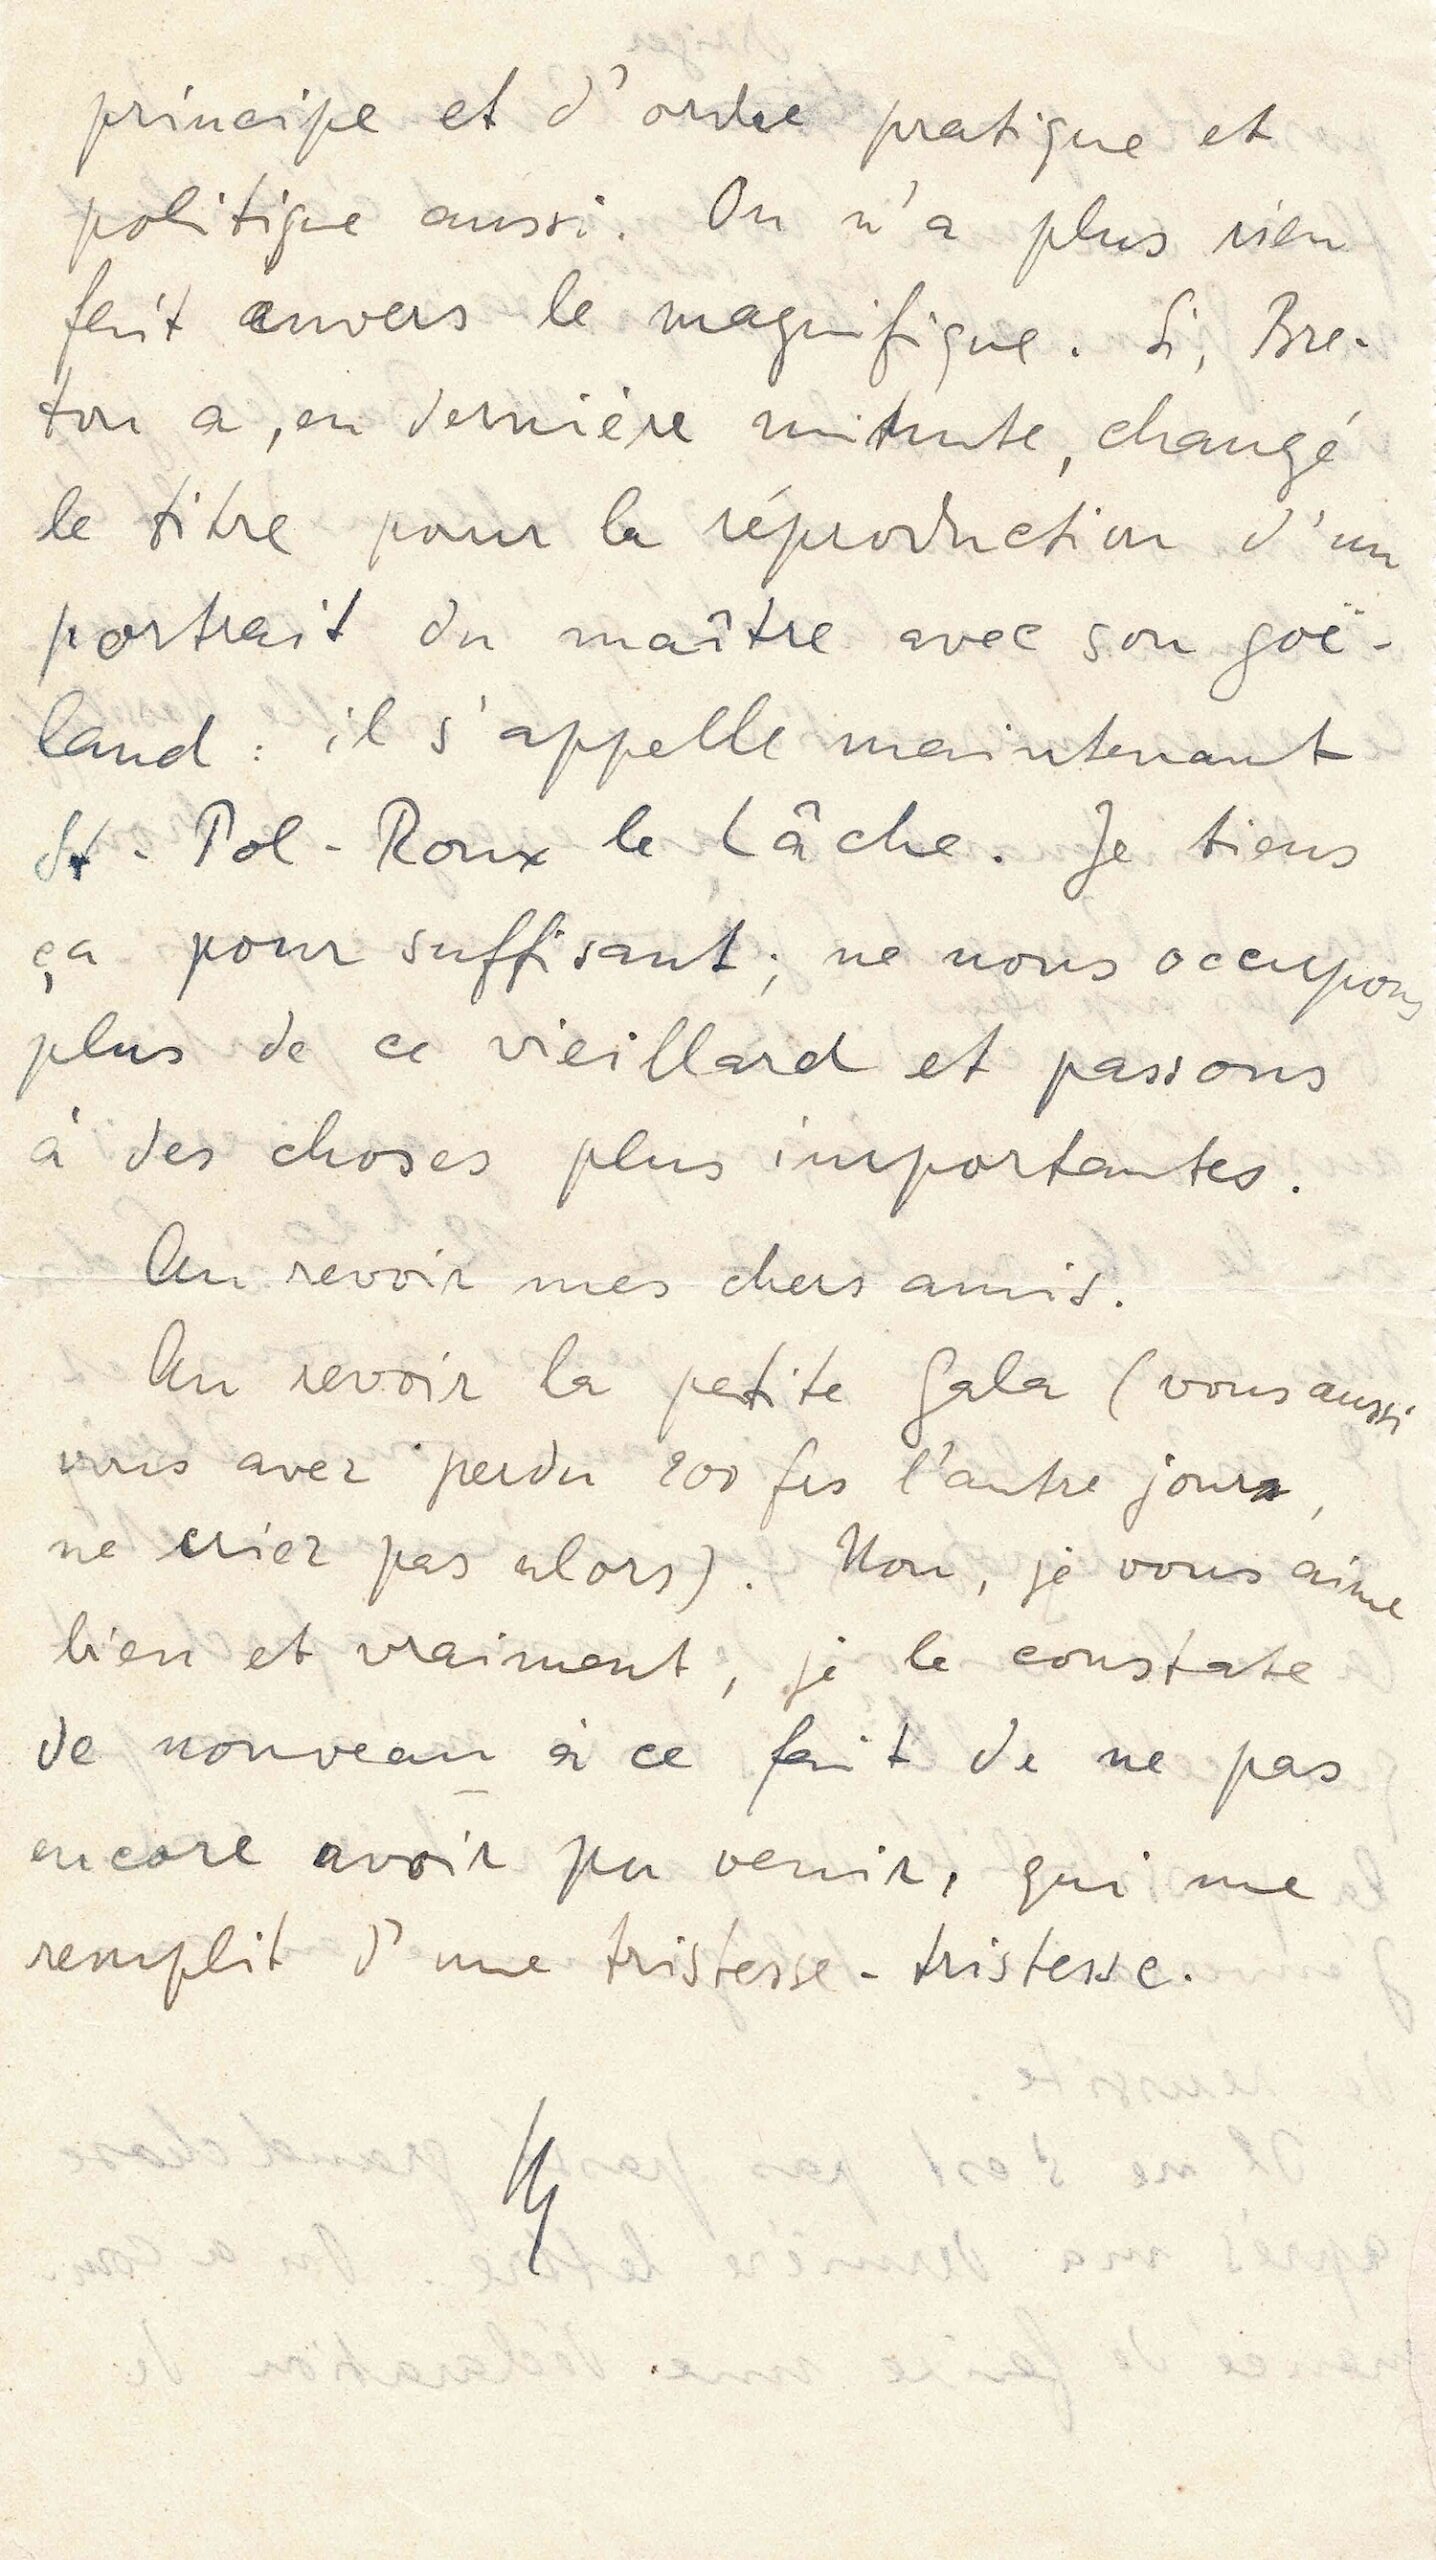 principe et d'ordre pratique et
politique aussi. On n'a plus rien
fait envers le magnifique. Si, Bre-
ton a, en dernière minute, changé
le titre pour la réproduction d'un
portrait du maître avec son goë-
land : il s'appelle maintenant
St-Pol-Roux le Lâche. Je tiens
ça pour suffisant; ne nous occupons
plus de ce vieillard et passons
à des choses plus importantes.
Au revoir mes chers amis.
Au revoir la petite Gala (vous aussi
vous avez perdu 200 frs l'autre jour,
ne criez pas alors). Non, je vous aime
bien et vraiment, je le constate
de nouveau à ce fait de ne pas
encore avoir pu venir, qui me
remplit d'une tristesse-tristesse.